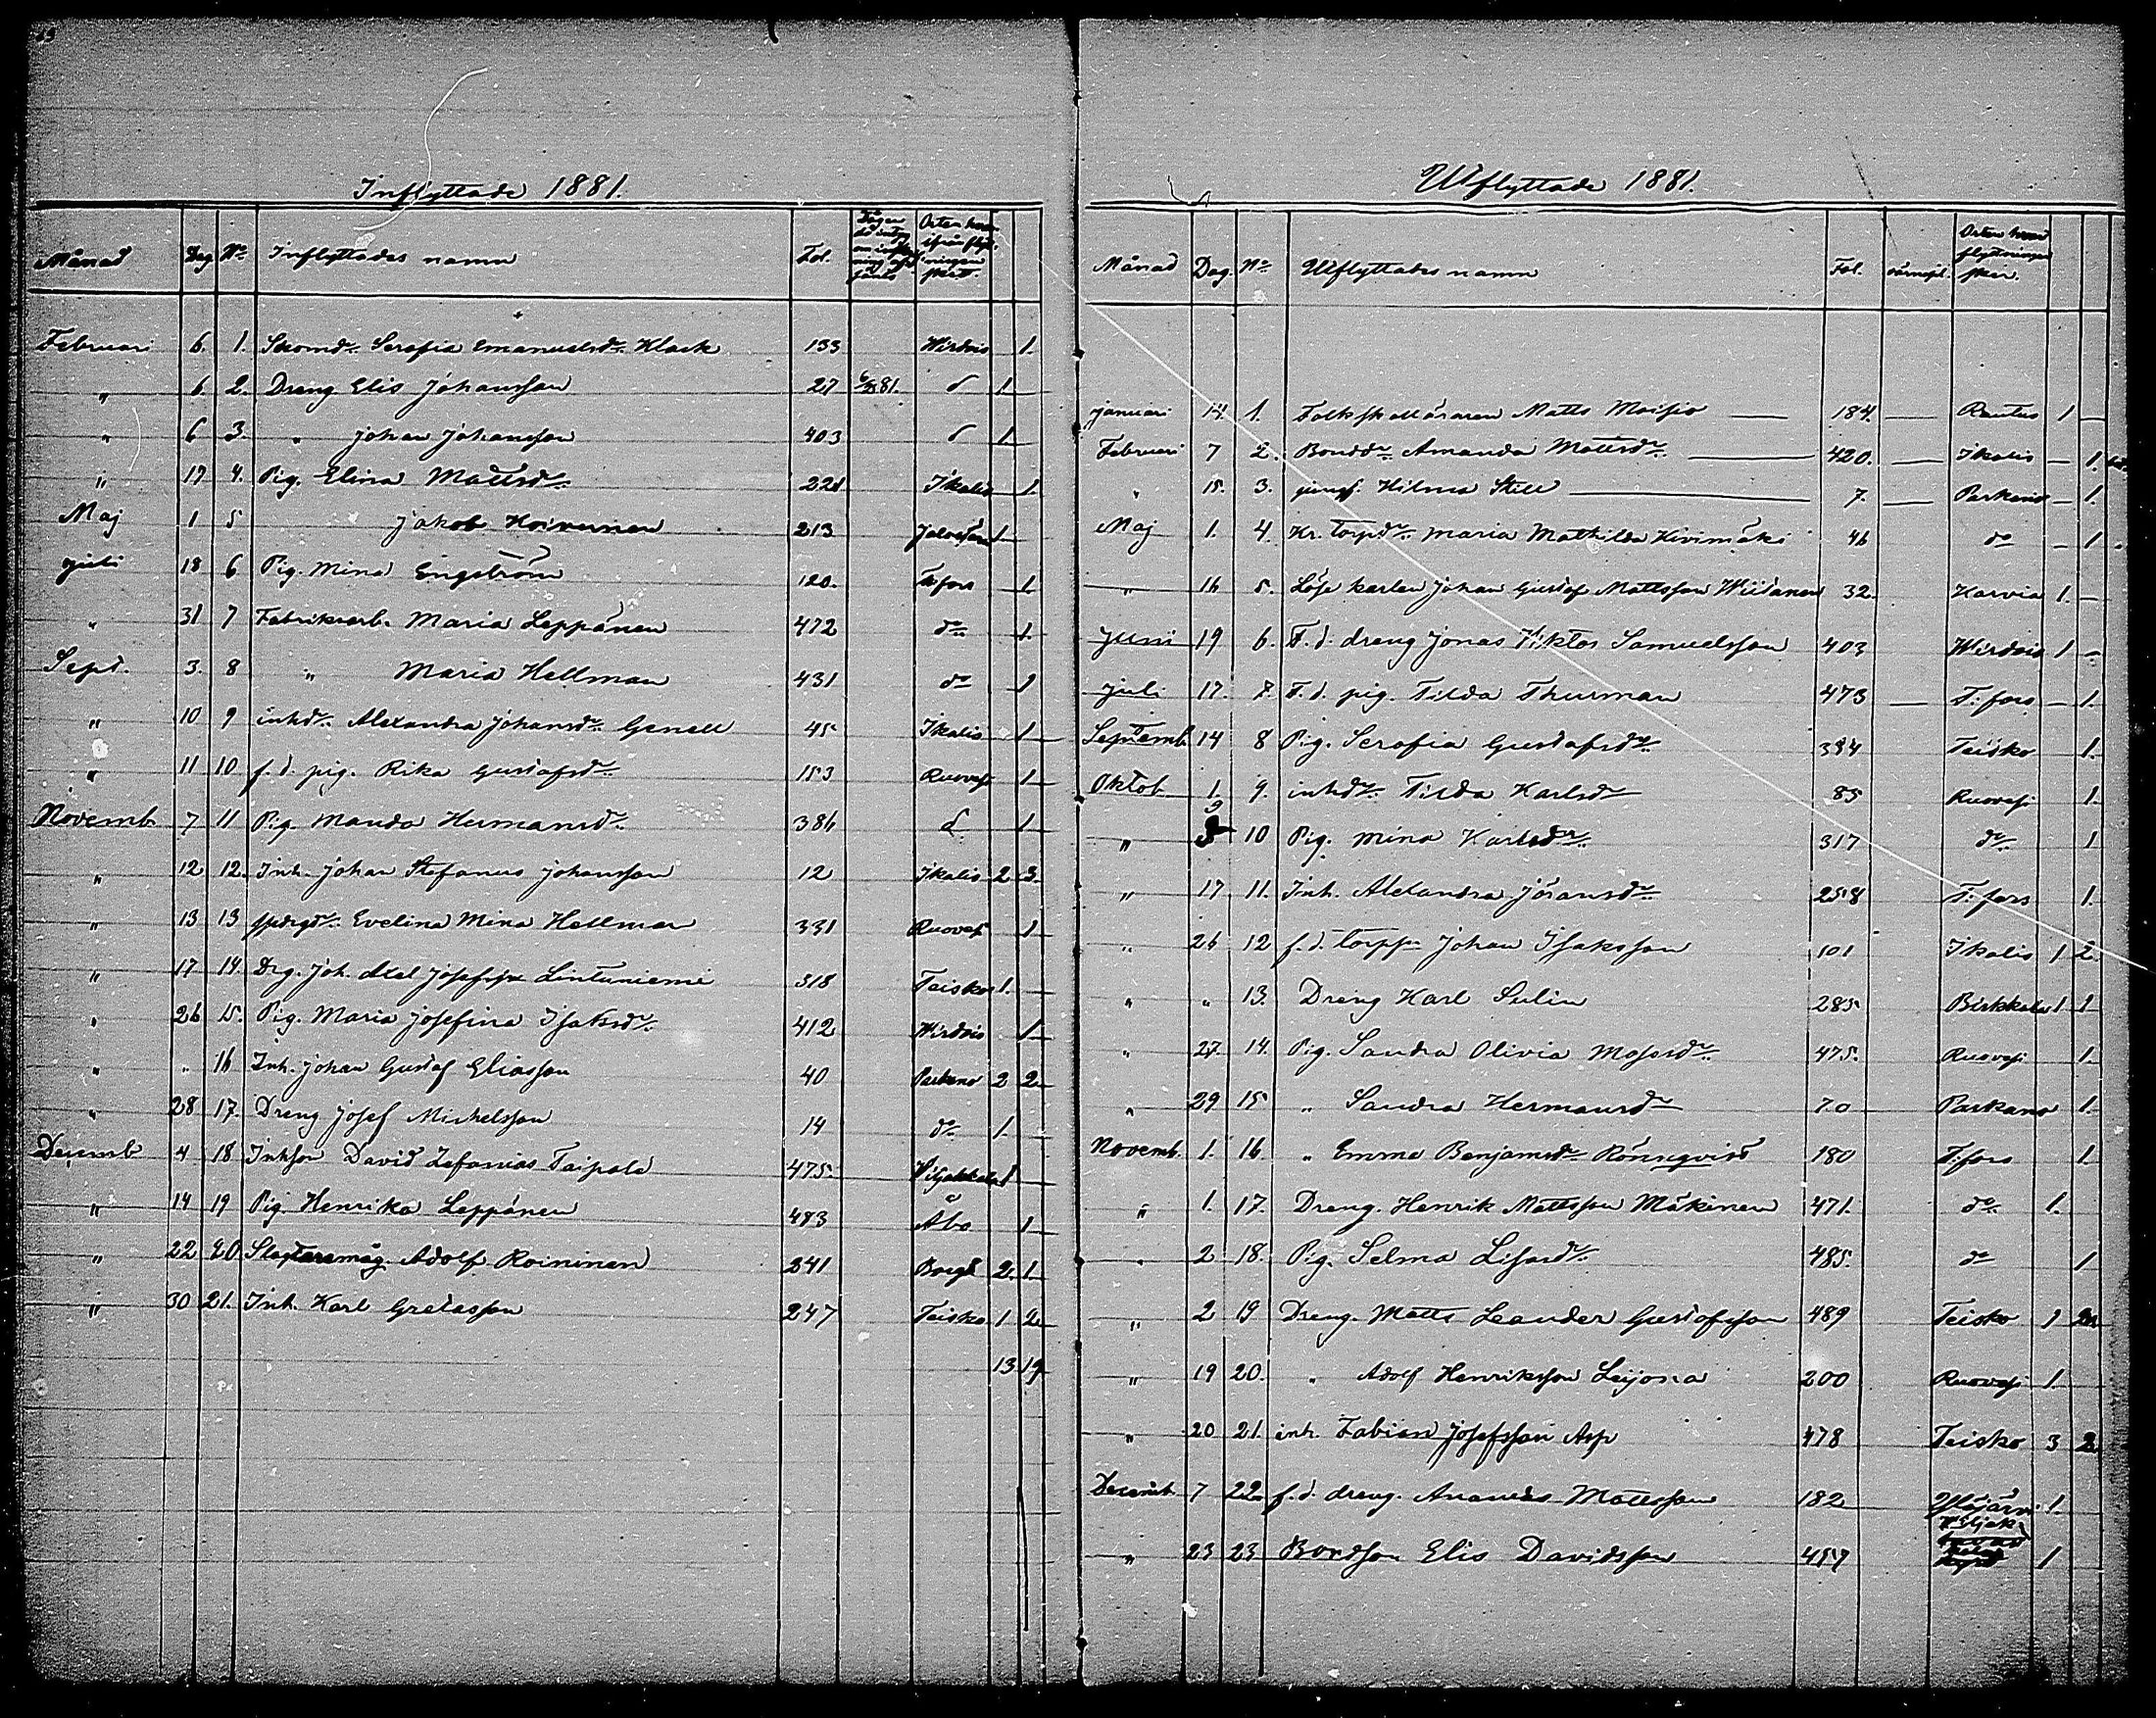 Inflyttade 1881.
Månad Dag No Inflyttades namn Fol. Orten ifrån
Februari 6. 1. Skomdr. Serafia Emanuelsdr. Klack 133 Wirdois 1.
" 6. 2. Dreng Elis Johansson 27 81. d 1.
" 6 3. " Johan Johansson 403 d 1.
" 17 4. Pig. Elina Mattsdr. 221 Ikalis 1.
Maj 1 5 Jakob Koivunen 213 1
Juli 18 6 Pig. Mina Engström 120. T:fors 1.
" 31 7 Fabriksarb. Maria Leppänen 472 do 1.
Sept. 3. 8 " Maria Hellman 431 do 1
" 10 9 inhdr. Alexandra Johansdr. Genell 45 Ikalis 1
" 11 10 f.d. pig. Rika Gustafsdr. 153 Ruovesi 1
Novemb. 7 11 Pig. Manda Hermansdr. 386 d 1
" 12 12. Inh. Johan Stefanus Johansson 12 Ikalis 2 3.
" 13 13 Evelina Mina Hellman 331 Ruovesi 1
" 17 14. Drg. Joh. Axel Josefsson Lintuniemi 318 Teisko 1.
" 26 15. Pig. Maria Josefina Isaksdr. 412 Wirdois 1
" " 16 Inh. Johan Gustaf Eliasson 40 Parkano 2 2
" 28 17. Dreng Josef Michelsson 14 do 1.
Decemb 4 18 Inhson David Zefanias Taipale 475. Viljakkala 1
" 14 19 Pig. Henrika Leppänen 483 Åbo 1
" 22 20. Adolf Roininen 241 Borgå 2. 1.
" 30 21. Inh. Karl Gretasson 247 Teisko 1 2
13 19
Utflyttade 1881.
Månad Dag. No Utflyttades namn Fol. Orten hvart flyttningen sker.
Januari 14. 1. Folkskolläraren Matts Moisio 184. Rautus 1
Februari 7 2. Bonddr. Amanda Mattsdr. 420. Ikalis 1.
" 15. 3. jungf. Hilma Still 7. Parkano 1.
Maj 1. 4. Kr. torpdr. Maria Mathilda Kivimäki 46 do 1
" 16 5. Löse karlen Johan Gustaf Mattsson Wiitanen 32. Karvia 1.
Juni 19 6. F.d. dreng Jonas Viktor Samuelsson 403 Wirdois 1
Juli 17. 7. F.d. pig. Tilda Thurman 473 T:fors 1.
Septemb. 14 8 Pig. Serafia Gustafsdr. 384 Teisko 1.
Oktob. 1. 9. inhdr. Tilda Karlsdr 85 Ruovesi 1.
" 9 10 Pig. Mina Karlsdr. 317 do 1
" 17 11. Inh. Alexandra Göransdr. 258 T:fors 1.
" 26 12 f.d. torpr Johan Isaksson 101 Ikalis 1 2.
" " 13. Dreng Karl Sulin 285 Birkkala 1 1
" 27. 14. Pig. Sandra Olivia Mosisdr. 475. Ruovesi 1.
" 29 15 " Sandra Hermansdr 70 Parkano 1.
Novemb. 1. 16. " Emma Benjamsdr Rönnqvist 180 T:fors 1.
" 1. 17. Dreng. Henrik Mattsson Mäkinen 471. do 1.
" 2 18. Pig. Selma Lisasdr. 485. do 1
" 2 19 Dreng. Matts Leander Gustafsson 489 Teisko 1 2
" 19 20. " Adolf Henriksson Leijona 200 Ruovesi 1.
" 20 21. inh. Fabian Josefsson Asp 478 Teisko 3 2
Decemb. 7 22. f.d. dreng. Ananias Mattsson 182 Ylöjärvi 1.
" 23 23 Bondson Elis Davidsson 457 1